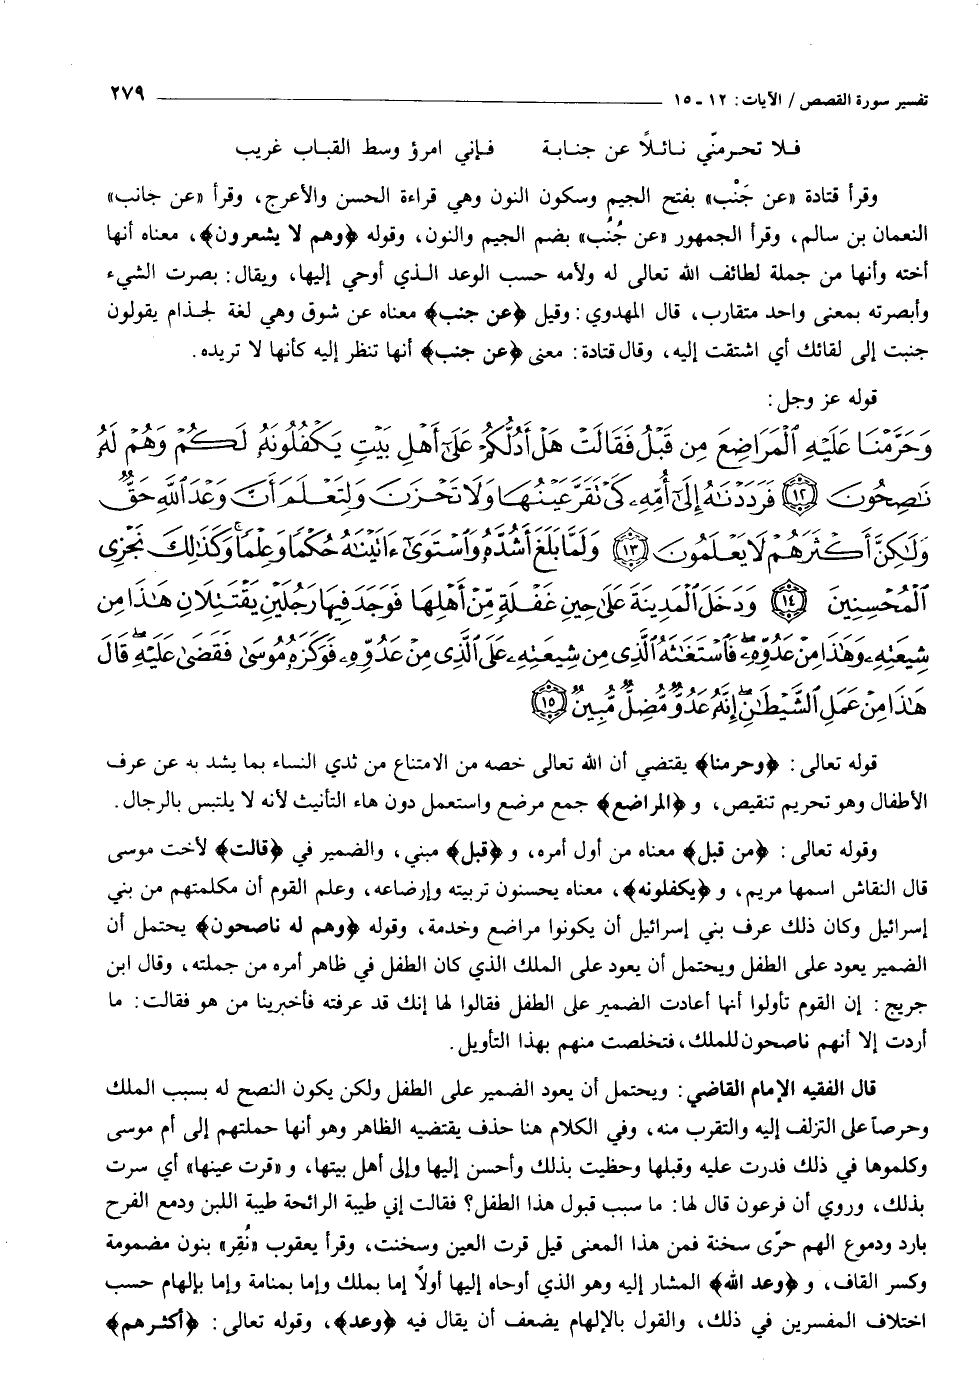 تفسير سورة القصص / الآيات : ١٢ - ١٥ ٢٧٩
فـلا تحـرمنّي نـائـلاً عن جنـابة فـإني امرؤ وسط القبـاب غريب
وقرأ قتادة «عن جَنْب» بفتح الجيم وسكون النون وهي قراءة الحسن والأعرج، وقرأ «عن جانب»
النعمان بن سالم، وقرأ الجمهور «عن جُنُب» بضم الجيم والنون، وقوله ﴿وهم لا يشعرون﴾، معناه أنها
أخته وأنها من جملة لطائف الله تعالى له ولأمه حسب الوعد الـذي أوحي إليها، ويقال: بصرت الشيء
وأبصرته بمعنى واحد متقارب، قال المهدوي: وقيل ﴿عن جنب﴾ معناه عن شوق وهي لغة لجذام يقولون
جنبت إلى لقائك أي اشتقت إليه، وقال قتادة: معنى ﴿عن جنب﴾ أنها تنظر إليه كأنها لا تريده.
قوله عز وجل:
وَحَرَّمْنَا عَلَيْهِ ٱلْمَرَاضِعَ مِن قَبْلُ فَقَالَتْ هَلْ أَدُلُّكُمْ عَلَىٰٓ أَهْلِ بَيْتٍ يَكْفُلُونَهُۥ لَكُمْ وَهُمْ لَهُۥ
نَٰصِحُونَ ﴿١٢﴾ فَرَدَدْنَٰهُ إِلَىٰٓ أُمِّهِۦ كَىْ تَقَرَّ عَيْنُهَا وَلَا تَحْزَنَ وَلِتَعْلَمَ أَنَّ وَعْدَ ٱللَّهِ حَقٌّ
وَلَٰكِنَّ أَكْثَرَهُمْ لَا يَعْلَمُونَ ﴿١٣﴾ وَلَمَّا بَلَغَ أَشُدَّهُۥ وَٱسْتَوَىٰٓ ءَاتَيْنَٰهُ حُكْمًا وَعِلْمًا ۚ وَكَذَٰلِكَ نَجْزِى
ٱلْمُحْسِنِينَ ﴿١٤﴾ وَدَخَلَ ٱلْمَدِينَةَ عَلَىٰ حِينِ غَفْلَةٍ مِّنْ أَهْلِهَا فَوَجَدَ فِيهَا رَجُلَيْنِ يَقْتَتِلَانِ هَٰذَا مِن
شِيعَتِهِۦ وَهَٰذَا مِنْ عَدُوِّهِۦ ۖ فَٱسْتَغَٰثَهُ ٱلَّذِى مِن شِيعَتِهِۦ عَلَى ٱلَّذِى مِنْ عَدُوِّهِۦ فَوَكَزَهُۥ مُوسَىٰ فَقَضَىٰ عَلَيْهِ ۖ قَالَ
هَٰذَا مِنْ عَمَلِ ٱلشَّيْطَٰنِ ۖ إِنَّهُۥ عَدُوٌّ مُّضِلٌّ مُّبِينٌ ﴿١٥﴾
قوله تعالى: ﴿وحرمنا﴾ يقتضي أن الله تعالى خصه من الامتناع من ثدي النساء بما يشد به عن عرف
الأطفال وهو تحريم تنقيص، و ﴿المراضع﴾ جمع مرضع واستعمل دون هاء التأنيث لأنه لا يلتبس بالرجال.
وقوله تعالى: ﴿من قبل﴾ معناه من أول أمره، و ﴿قبل﴾ مبني، والضمير في ﴿قالت﴾ لأخت موسى
قال النقاش اسمها مريم، و ﴿يكفلونه﴾، معناه يحسنون تربيته وإرضاعه، وعلم القوم أن مكلمتهم من بني
إسرائيل وكان ذلك عرف بني إسرائيل أن يكونوا مراضع وخدمة، وقوله ﴿وهم له ناصحون﴾ يحتمل أن
الضمير يعود على الطفل ويحتمل أن يعود على الملك الذي كان الطفل في ظاهر أمره من جملته، وقال ابن
جريج: إن القوم تأولوا أنها أعادت الضمير على الطفل فقالوا لها إنك قد عرفته فأخبرينا من هو فقالت: ما
أردت إلا أنهم ناصحون للملك، فتخلصت منهم بهذا التأويل.
قال الفقيه الإمام القاضي: ويحتمل أن يعود الضمير على الطفل ولكن يكون النصح له بسبب الملك
وحرصاً على التزلف إليه والتقرب منه، وفي الكلام هنا حذف يقتضيه الظاهر وهو أنها حملتهم إلى أم موسى
وكلموها في ذلك فدرت عليه وقبلها وحظيت بذلك وأحسن إليها وإلى أهل بيتها، و «قرت عينها» أي سرت
بذلك، وروي أن فرعون قال لها: ما سبب قبول هذا الطفل؟ فقالت إني طيبة الرائحة طيبة اللبن ودمع الفرح
بارد ودموع الهم حرّى سخنة فمن هذا المعنى قيل قرت العين وسخنت، وقرأ يعقوب «نُقِر» بنون مضمومة
وكسر القاف، و ﴿وعد الله﴾ المشار إليه وهو الذي أوحاه إليها أولاً إما بملك وإما بمنامة وإما بإلهام حسب
اختلاف المفسرين في ذلك، والقول بالإلهام يضعف أن يقال فيه ﴿وعد﴾، وقوله تعالى: ﴿أكثرهم﴾